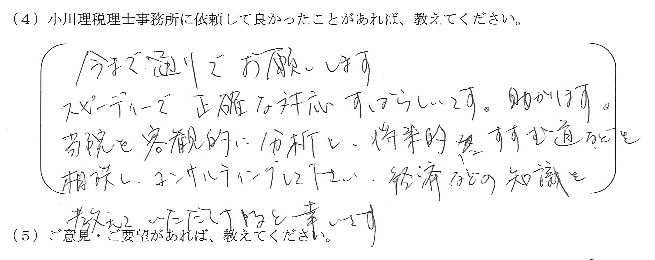 (4)小川理税理士事務所に依頼して良かったことがあれば、教えてください。
今まで通りで お願いします
スピーディーで 正確な対応 すばらしいです。助かります。
当院を客観的に分析し、将来的にすすむ道などを
相談し、コンサルティングして下さい。経済などの知識を
教えていただけすると幸いです
(5)ご意見・ご要望があれば、教えてください。